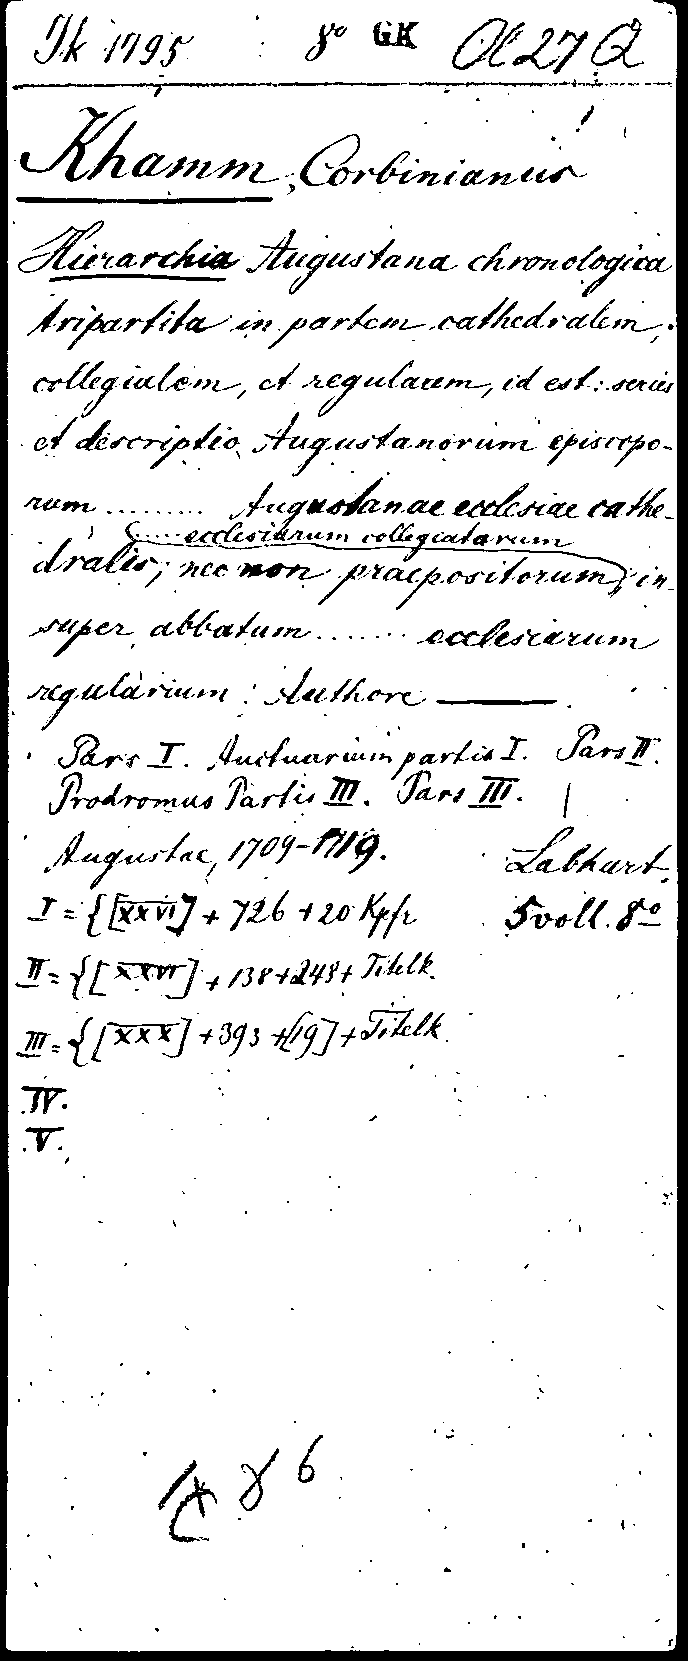 Ik 1795 8º GK Ol 27 Q
Khamm, Corbinianus
Hierarchia Augustana chronologica
tripartita in partem cathedralem,
collegialem, et regularem, id est: series
et descriptio Augustanorum episcopo-
rum ......... Augustanae ecclesiae cathe-
..... ecclesiarum collegiatarum
dralis; nec non praepositorum, in-
super abbatum ....... ecclesiarum
regularium: Authore ———.
Pars I. Auctuarium partis I. Pars II.
Prodromus Partis III. Pars III. |
Augustae, 1709-1719. Labhart.
I = {[XXVI] + 726 + 20 Kpfr 5 voll. 8º
II = {[XXVI] + 138 + 248 + Titelk.
III = {[XXX] + 393 + [19] + Titelk.
IV.
V.